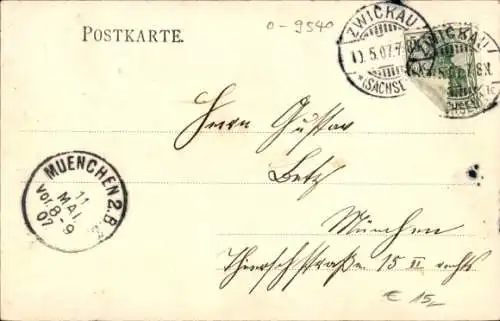 POSTKARTE.
o-9540
ZWICKAU
5.07.7-8N.
*(SACHSEN)
ZWICKAU
5.07. 8N.
Herrn Gustav
Betz
MUENCHEN 2.B.
11
MAI.
Vor.8-9
07
München
Thierschstraße 15 II rechts
€ 15,-